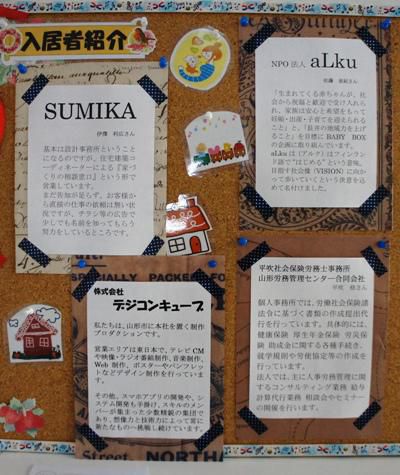 入居者紹介
SUMIKA
伊澤 利広さん
基本は設計事務所ということ
になるのですが、住宅建築コ
ーディネーターによる『家づ
くりの相談窓口』という形で
営業しています。
まだ告知が足らず、お客様か
ら直接の仕事の依頼は無い状
況ですが、チラシ等の広告で
少しでも名前を知ってもらう
努力をしているところです。
NPO 法人 aLku
「生まれてくる赤ちゃんが、社
会から祝福と歓迎で受け入れ
られ、家族は安心と希望をもっ
て妊娠・出産・子育てを迎えられ
ること」と、「長井の地域力を上げ
ること」を目標に BABY BOX
の企画に取り組んでいます。
aLku は（アルク）はフィンラン
ド語で“はじめる”という意味。
目指す社会像（VISION）に向か
って歩いていくという決意を込
めて名付けました。
株式会社
デジコンキューブ
私たちは、山形市に本社を置く制作
プロダクションです。
営業エリアは東日本で、テレビCM
や映像・ラジオ番組制作、音楽制作、
Web 制作、ポスターやパンフレッ
トなどデザイン制作を行ってい
ます。
その他、スマホアプリの開発や、シ
ステム開発も手掛け、スキルのメン
バーが集まった少数精鋭の集団で
あり、想像力と技術力によって常に
新たなものへ挑戦し続けています。
平吹社会保険労務士事務所
山形労務管理センター合同会社
個人事務所では、労働社会保険諸
法令に基づく書類の作成提出代
行を行っています。具体的には、
健康保険 厚生年金保険 労災保
険 助成金に関する各種手続き、
就学規則や労使協定等の作成を
行っています。
法人では、主に人事労務管理に関
するコンサルティング業務 給与
計算代行業務 相談会やセミナー
の開催を行います。
SPECIALLY PACKED FO
Street
NORTH